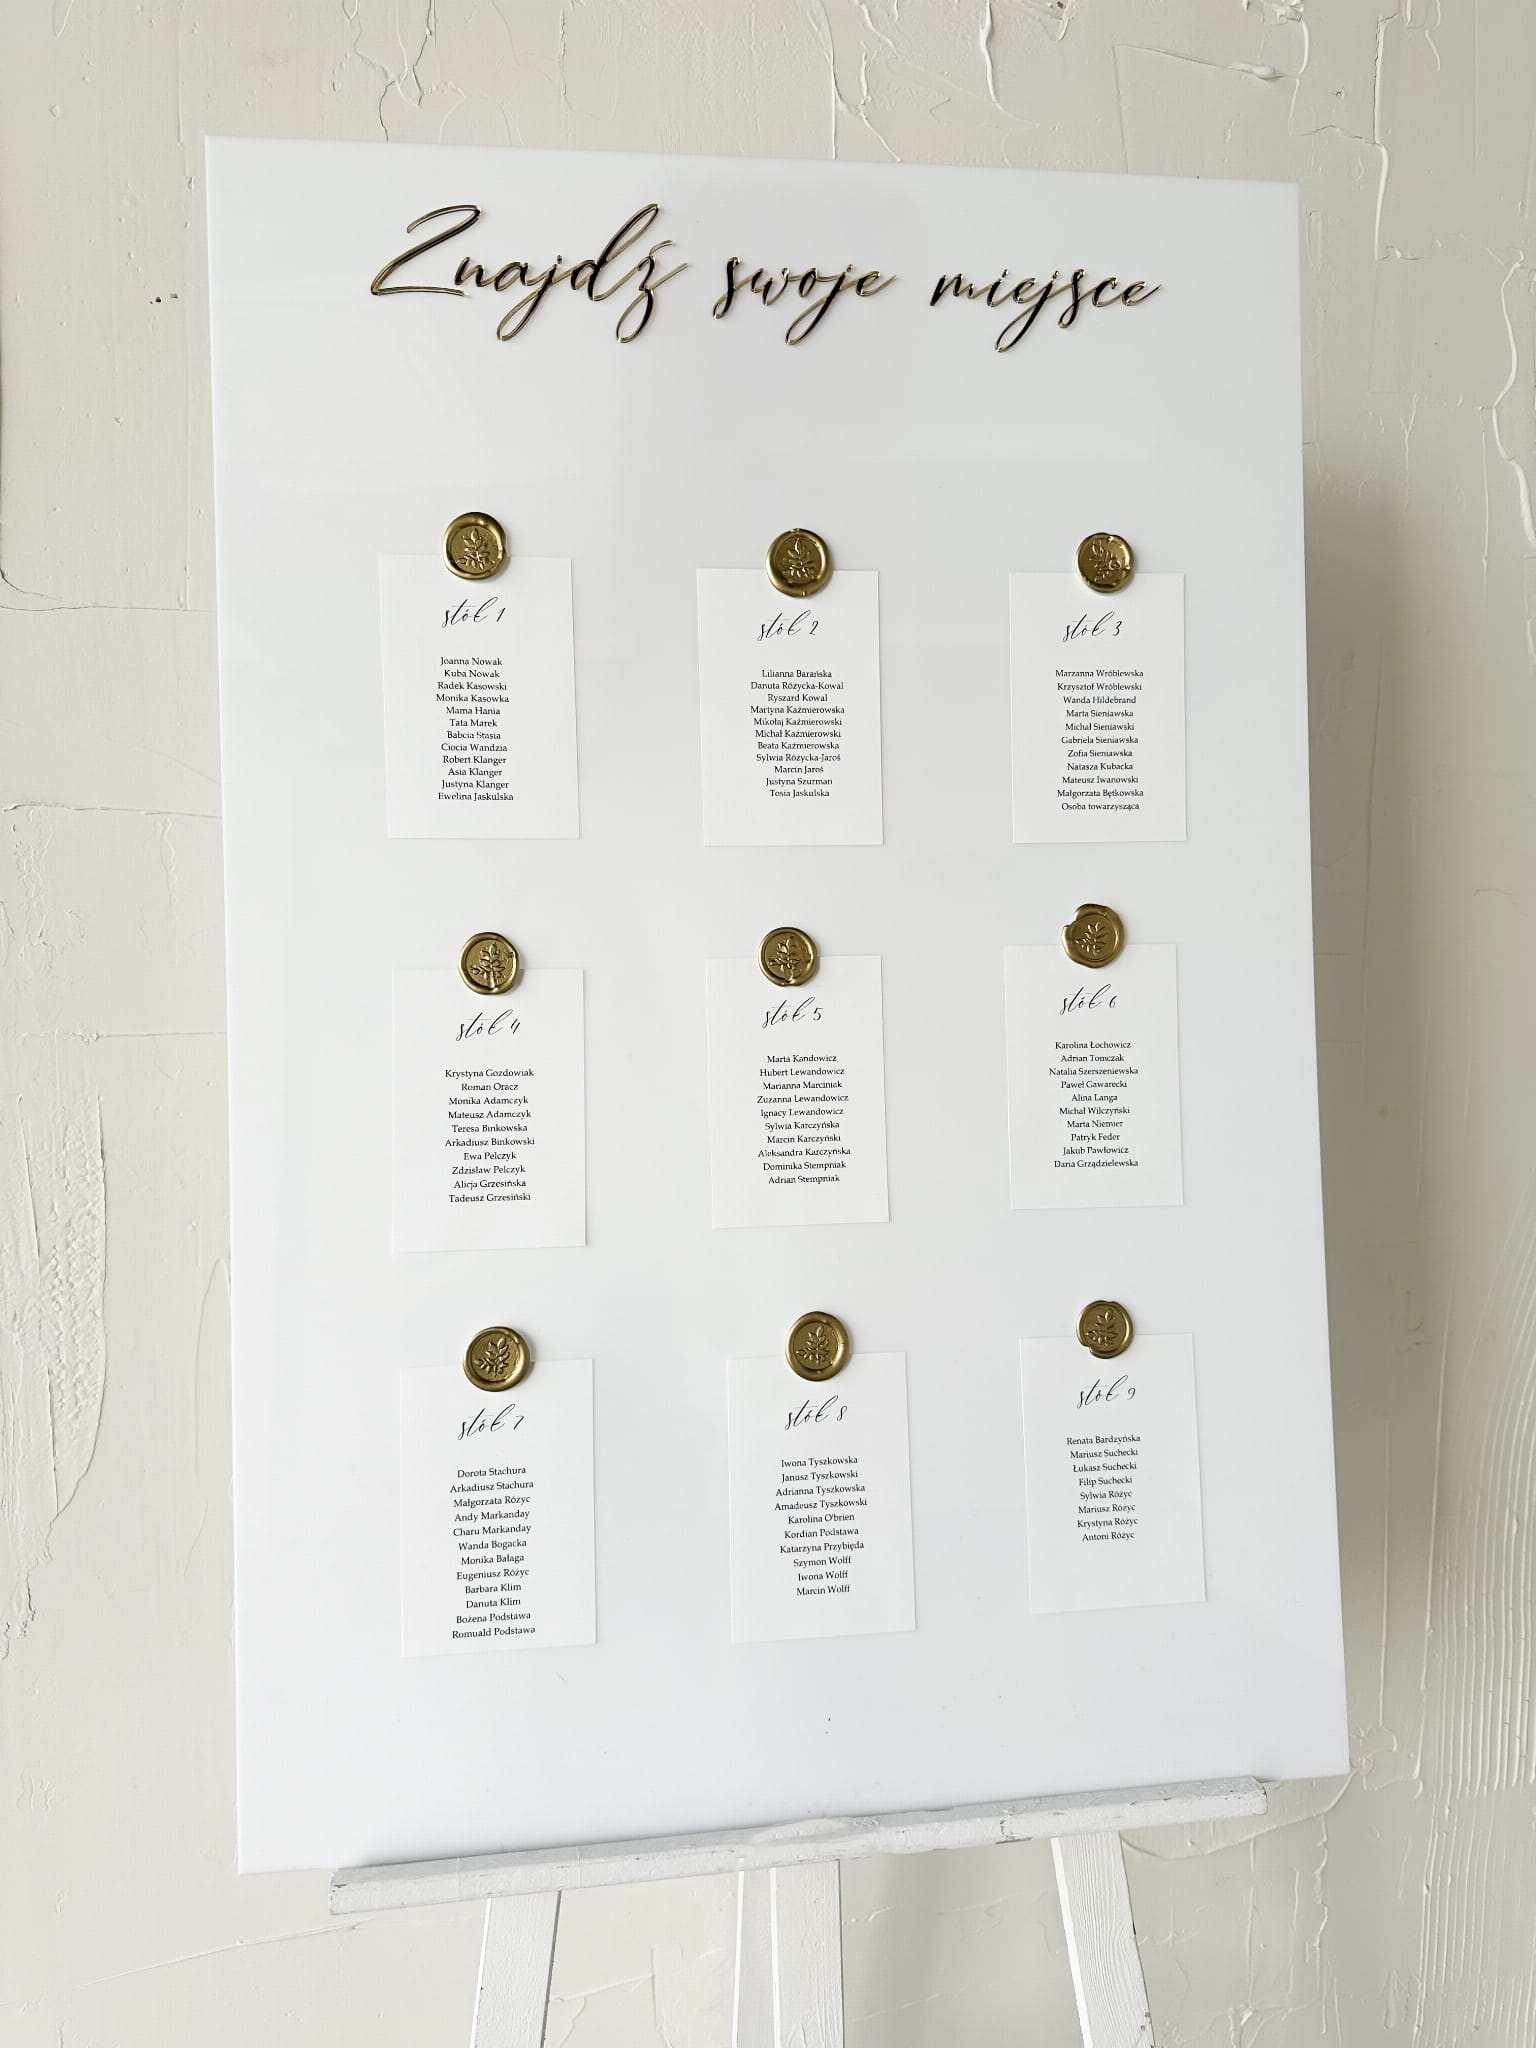 Znajdź swoje miejsce
stół 1
Joanna Nowak
Kuba Nowak
Radek Kasowski
Monika Kasowka
Mama Hania
Tata Marek
Babcia Stasia
Ciocia Wandzia
Robert Klanger
Asia Klanger
Justyna Klanger
Ewelina Jaskulska
stół 2
Lilianna Barańska
Danuta Różycka-Kowal
Ryszard Kowal
Martyna Kaźmierowska
Mikołaj Kaźmierowski
Michał Kaźmierowski
Beata Kaźmierowska
Sylwia Różycka-Jaroś
Marcin Jaroś
Justyna Szurman
Tosia Jaskulska
stół 3
Marzanna Wróblewska
Krzysztof Wróblewski
Wanda Hildebrand
Marta Sieniawska
Michał Sieniawski
Gabriela Sieniawska
Zofia Sieniawska
Natasza Kubacka
Mateusz Iwanowski
Małgorzata Bętkowska
Osoba towarzysząca
stół 4
Krystyna Gozdowiak
Roman Oracz
Monika Adamczyk
Mateusz Adamczyk
Teresa Binkowska
Arkadiusz Binkowski
Ewa Pelczyk
Zdzisław Pelczyk
Alicja Grzesińska
Tadeusz Grzesiński
stół 5
Marta Kandowicz
Hubert Lewandowicz
Marianna Marciniak
Zuzanna Lewandowicz
Ignacy Lewandowicz
Sylwia Karczyńska
Marcin Karczyński
Aleksandra Karczyńska
Dominika Stempniak
Adrian Stempniak
stół 6
Karolina Łochowicz
Adrian Tomczak
Natalia Szerszeniewska
Paweł Gawarecki
Alina Langa
Michał Wilczyński
Marta Niemier
Patryk Feder
Jakub Pawłowicz
Daria Grządzielewska
stół 7
Dorota Stachura
Arkadiusz Stachura
Małgorzata Różyc
Andy Markanday
Charu Markanday
Wanda Bogacka
Monika Bałaga
Eugeniusz Różyc
Barbara Klim
Danuta Klim
Bożena Podstawa
Romuald Podstawa
stół 8
Iwona Tyszkowska
Janusz Tyszkowski
Adrianna Tyszkowska
Amadeusz Tyszkowski
Karolina O'brien
Kordian Podstawa
Katarzyna Przybięda
Szymon Wolff
Iwona Wolff
Marcin Wolff
stół 9
Renata Bardzyńska
Mariusz Suchecki
Łukasz Suchecki
Filip Suchecki
Sylwia Różyc
Mariusz Różyc
Krystyna Różyc
Antoni Różyc